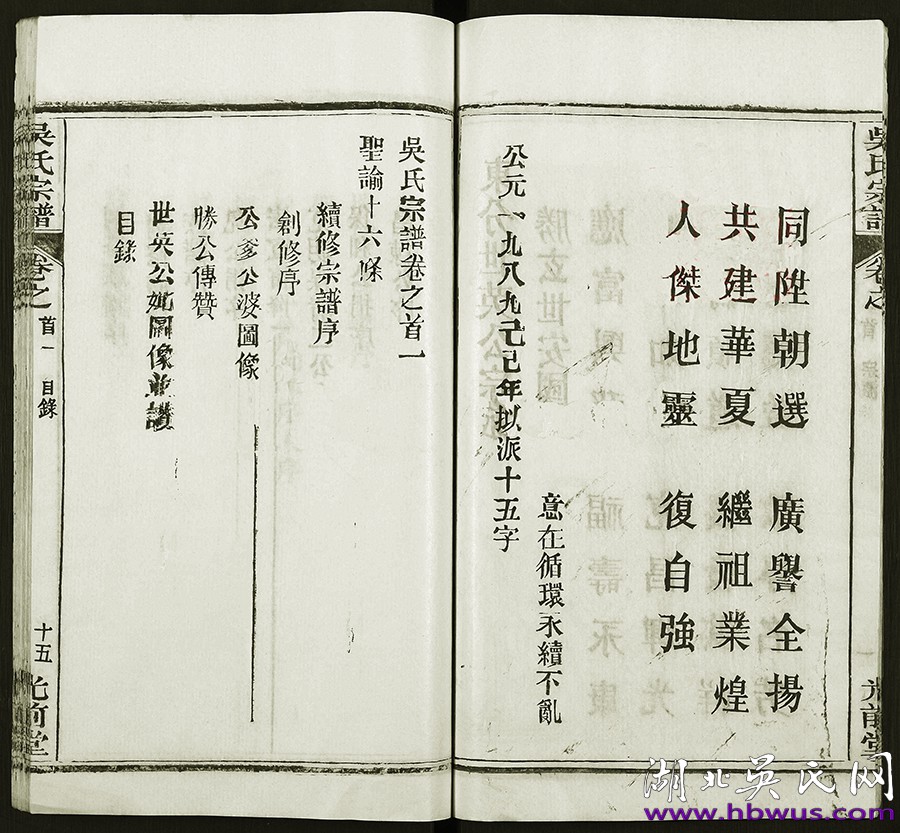 同陞朝選 廣譽全揚
共建華夏 繼祖業煌
人傑地靈 復自強
意在循環永續不亂
公元一九八九己巳年拟派十五字
吳氏宗譜
卷之
首
光前堂
吳氏宗譜卷之首一
聖諭十六條
續修宗譜序
創修序
公爹公婆圖像
勝公傳贊
世英公妣圖像並讚
目錄
吳氏宗譜
卷之
首一
目錄
十五
光前堂
湖北吴氏网
www.hbwus.com